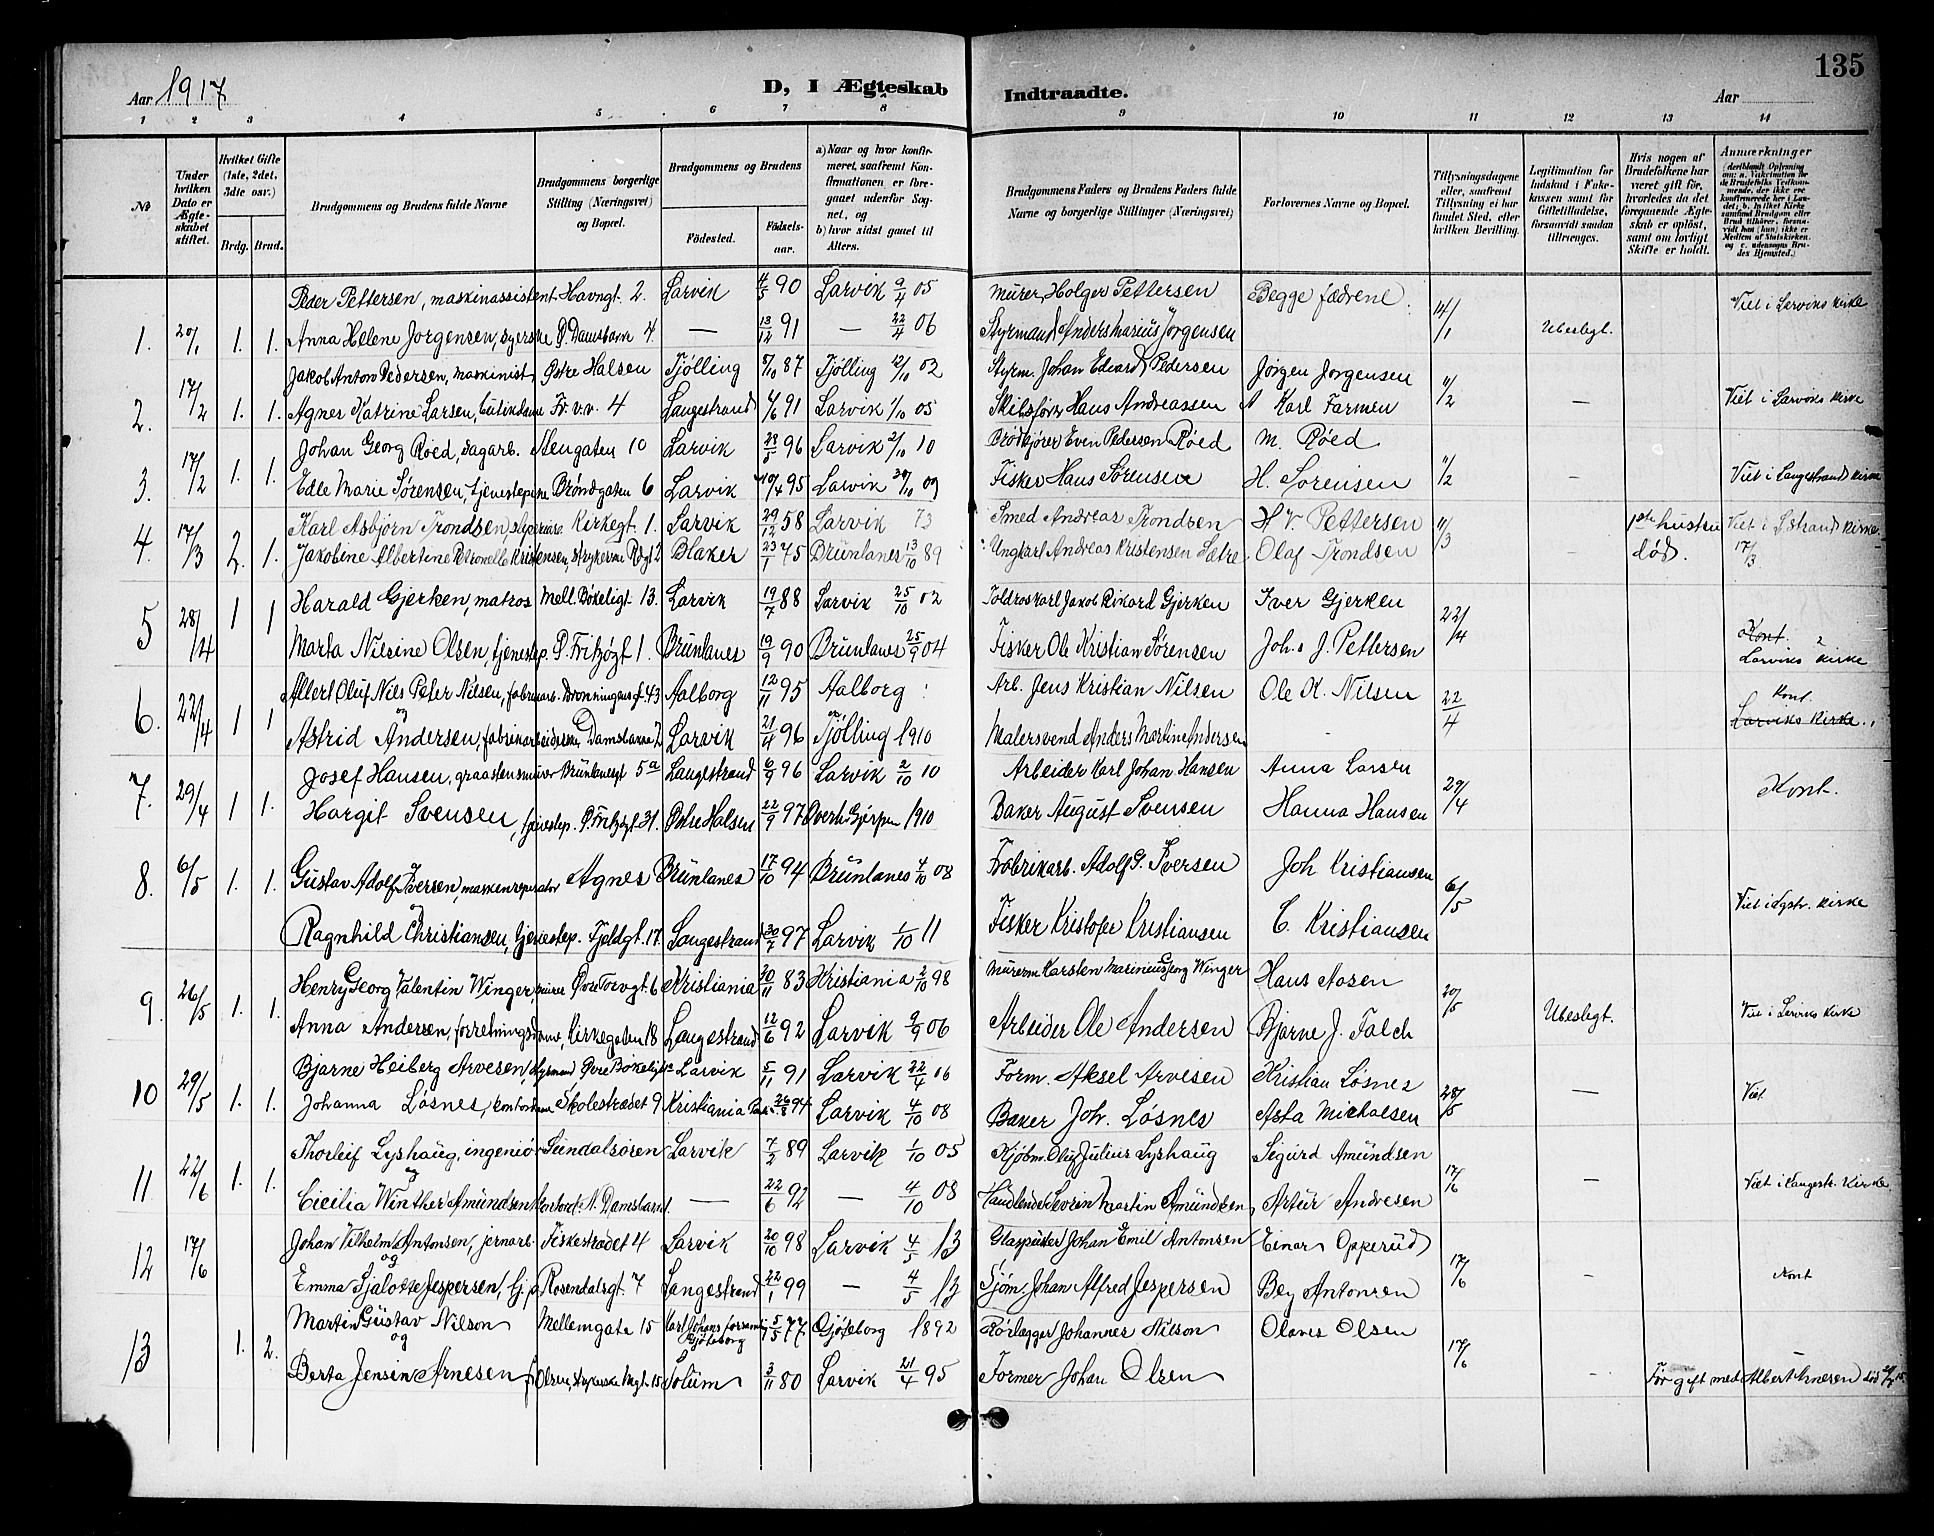 135
Aar 1917
D, I Ægteskab Indtraadte.
Aar
1 2 3 4 5 6 7 8 9 10 11 12 13 14
No
Under hvilken Dato er Ægteskabet stiftet.
Hvilket Gifte (1ste, 2det, 3die osv.)
Brdg. Brud.
Brudgommens og Brudens fulde Navne
Brudgommens borgerlige Stilling (Næringsvei) og Bopæl.
Brudgommens og Brudens
Fødested. Fødselsaar.
a) Naar og hvor konfirmeret, saafremt Konfirmationen er foregaaet udenfor Sognet, og
b) hvor sidst gaaet til Alters.
Brudgommens Faders og Brudens Faders fulde Navne og borgerlige Stillinger (Næringsvei)
Forlovernes Navne og Bopæl.
Tillysningsdagene eller, saafremt Tillysning ei har fundet Sted, efter hvilken Bevilling.
Legitimation for Indskud i Enkekassen samt for Giftetilladelse, forsaavidt saadan tiltrænges.
Hvis nogen af Brudefolkene har været gift før, hvorledes da det foregaaende Ægteskab er opløst, samt om lovligt Skifte er holdt.
Anmærkninger
Peder Pettersen, maskinassistent Havngt. 2. Larvik 4/5 90 Larvik 9/4 05 Murer Holger Pettersen Begge fædrene Viet i Larviks kirke
1. 20/1 1. 1. Anna Helene Jorgensen, syerske P. Damsbakn 4. — 13/12 91 — 22/4 06 Styrmand Anders Marius Jorgensen 14/1 Ubeslegt.
Jakob Anton Pedersen, maskinist Østre Halsen Tjölling 5/10 87 Tjölling 12/10 02 Styrm. Johan Edvard Pedersen Jörgen Jorgensen
2. 17/2 1. 1. Agnes Katrine Larsen, butikdame Fr. v.v. 4 Langestrand 4/6 91 Larvik 1/10 05 Skibsförer Hans Andreassen A Karl Farmen 11/2 — Viet i Larviks kirke
Johan Georg Röed, dagarb. Stengaten 10 Larvik 28/5 96 Larvik 2/10 10 Brödkjörer Even Pedersen Röed M. Röed
3. 17/2 1. 1. Edle Marie Sörensen, tjenestepike Bröndgaten 6 Larvik 10/4 95 Larvik 30/10 09 Fisker Hans Sörensen H. Sorensen 11/2 — Viet i Langestrand kirke
Karl Asbjörn Trondsen Kirkegt. 1. Larvik 29/12 58 Larvik 73 Smed Andreas Trondsen H V. Pettersen 1ste hustru Viet i L.strand kirke.
4. 17/3 2. 1. Jakobine Albertine Petronelle Kristensen, strykerske Rdgt 2 Blaker 23/1 75 Brunlanes 13/10 89 Ungkarl Andreas Kristensen Sætre Olaf Trondsen 11/3 — död. 17/3
Harald Gjerken, matros Mell. Bökeligt. 13. Larvik 19/7 88 Larvik 25/10 02 Toldroskarl Jakob Rikard Gjerken Iver Gjerken
5 28/4 1 1 Marta Nilsine Olsen, tjenestep. P. Fritzögt 1. Brunlanes 19/9 90 Brunlanes 25/9 04 Fisker Ole Kristian Sörensen Johs J. Pettersen 22/4 Kont. Larviks kirke
Albert Oluf Niels Peter Nilsen, fabrikarb. Dronningens gt. 43 Aalborg 12/11 95 Aalborg Arb. Jens Kristian Nilsen Ole K. Nilsen Kont.
6. 22/4 1 1 og Astrid Andersen, fabrikarbeiderske Damsbakn 2 Larvik 21/4 96 Tjölling 1910 Malersvend Anders Martin Andersen 22/4 Larviks kirke.
Josef Hansen, graastensmurer Brunlanesgt 5a Langestrand 6/9 96 Larvik 2/10 10 Arbeider Karl Johan Hansen Anna Larsen
7. 29/4 1 1. Margit Svensen, tjenestep. P. Fritzögt 31. Östre Halsen 22/9 97 Gjerpen 1910 Baker August Svensen Hanna Hansen 29/4 Kont.
8. 6/5 1. 1. Gustav Adolf Iversen, maskinreperatör Agnes Brunlanes 17/10 94 Brunlanes 4/10 08 Fabrikarb. Adolf G. Iversen Joh Kristiansen
og Ragnhild Christiansen, tjenestep. Fjeldgt. 17. Langestrand 30/7 97 Larvik 1/10 11 Fisker Kristofer Kristiansen C. Kristiansen 6/5 Viet i Lgstr. kirke
Henry Georg Valentin Winger, murer Övre Torvgt. 6 Kristiania 20/11 83 Kristiania 2/10 98 Murerm Karsten Marinius Georg Winger Hans Aasen
9. 26/5 1. 1. Anna Andersen, forretningsdame, Kirkegaten 18 Langestrand 12/6 92 Larvik 9/9 06 Arbeider Ole Andersen Bjarne J. Falch 20/5 Ubeslegt. Viet i Larviks kirke
Bjarne Heiberg Arvesen, styrmand Övre Bökeligt Larvik 5/11 91 Larvik 22/4 06 Form. Aksel Arvesen Kristian Lösnes
10 29/5 1. 1. Johanna Lösnes, kontordame Skolestrædet 9 Kristiania 26/8 94 Larvik 4/10 08 Baker Joh. Lösnes Asta Michalsen 28/5 — Viet
Thorleif Lyshaug, ingeniör Sundalsören Larvik 7/2 89 Larvik 1/10 05 Kjöbm. Oluf Julius Lyshaug Sigurd Amundsen
11 22/6 1. 1. og Cicilia Winther Amundsen Kontord. N. Damsbakn 1. — 22/6 92 — 4/10 08 Handlende Severin Martin Amundsen Artur Andresen 17/6 — Viet i Langestr. Kirke
Johan Vilhelm Antonsen, jernarb. Fiskestrædet 4 Larvik 20/10 98 Larvik 4/5 13 Glaspuster Johan Emil Antonsen Einar Opperud
12 17/6 og Emma Sjalotte Jespersen, tj.p. Rosendalsgt. 7 Langestrand 22/1 99 — 4/5 13 Sjöm. Johan Alfred Jespersen Bey Antonsen 17/6 — Kont
Martin Gustav Nilson Mellemgate 15 Karl Johans forsaml. Gjöteborg 5/5 77 Gjöteborg 1892 Rörlægger Johannes Nilson Olaves Olsen
13 1. 2. og Berta Jensine Arnesen f. Olsen, strykerske Mgt. 15 Solum 3/11 80 Larvik 21/4 95 Former Johan Olsen 17/6 — Før gift med Albert Arnesen död